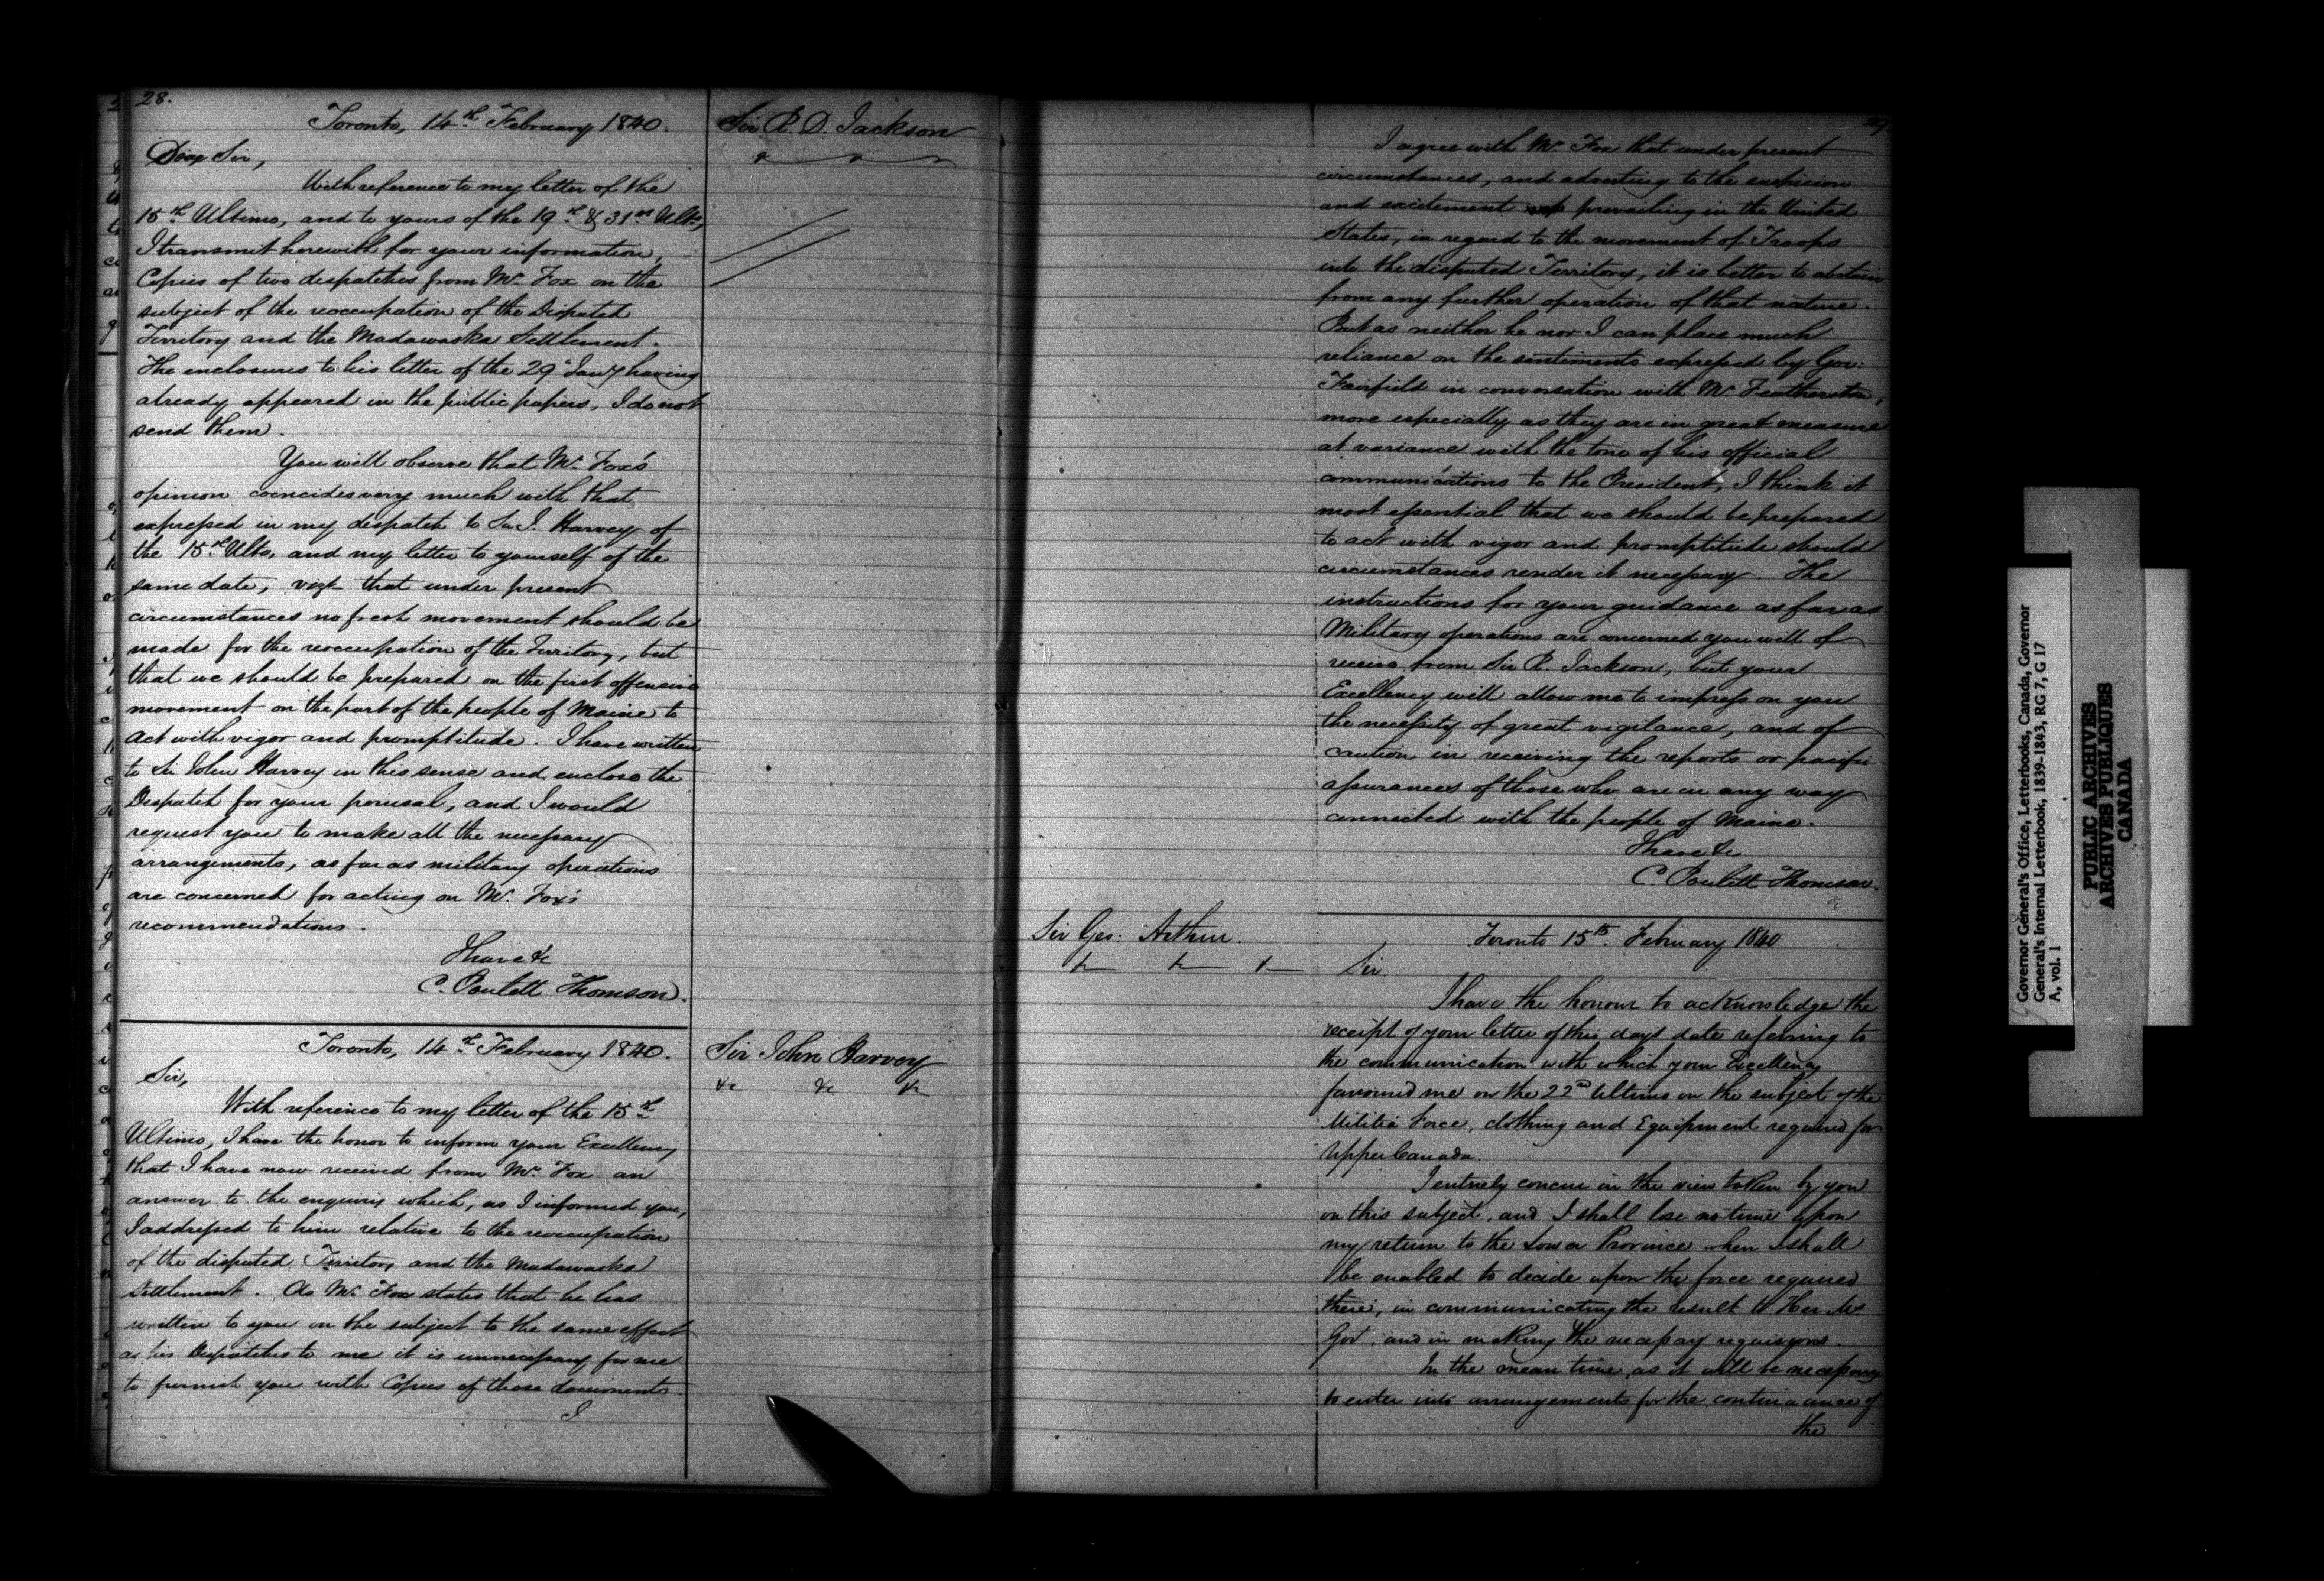 28.
Toronto, 14th February 1840.
Sir R. D. Jackson
Dear Sir,
With reference to my letter of the
15th Ultimo, and to yours of the 19th & 31st Ulto,
I transmit herewith for your information,
Copies of two despatches from Mr. Fox on the
subject of the reoccupation of the Disputed
Territory and the Madawaska Settlement.
The enclosures to his letter of the 29 Jany having
already appeared in the public papers, I do not
send them.
You will observe that Mr. Fox's
opinion coincides very much with that
expressed in my despatch to Sir J. Harvey of
the 15th Ulto, and my letter to yourself of the
same date, vizt that under present
circumstances no fresh movement should be
made for the reoccupation of the Territory, but
that we should be prepared on the first offensive
movement on the part of the people of Maine to
act with vigor and promptitude. I have written
to Sir John Harvey in this sense and enclose the
Despatch for your perusal, and I would
request you to make all the necessary
arrangements, as far as military operations
are concerned for acting on Mr. Fox's
recommendations.
I have &c
C. Poulett Thomson.
Toronto, 14th February 1840.
Sir John Harvey
&c &c &c
Sir,
With reference to my letter of the 15th
Ultimo, I have the honor to inform your Excellency
that I have now received from Mr. Fox an
answer to the enquiry which, as I informed you,
I addressed to him relative to the reoccupation
of the disputed Territory and the Madawaska
Settlement. As Mr. Fox states that he has
written to you on the subject to the same effect
as his Despatches to me it is unnecessary for me
to furnish you with Copies of those documents.
I
29.
I agree with Mr. Fox that under present
circumstances, and adverting to the suspicion
and excitement prevailing in the United
States, in regard to the movement of Troops
into the disputed Territory, it is better to abstain
from any further operation of that nature.
But as neither he nor I can place much
reliance on the sentiments expressed by Gov:
Fairfield in conversation with Mr. Featherston,
more especially as they are in great measure
at variance with the tone of his official
communications to the President, I think it
most essential that we should be prepared
to act with vigor and promptitude should
circumstances render it necessary. The
instructions for your guidance as far as
Military operations are concerned you will of
receive from Sir R. Jackson, but your
Excellency will allow me to impress on you
the necessity of great vigilance, and of
caution in receiving the reports or pacific
assurances of those who are in any way
connected with the people of Maine.
I have &c
C. Poulett Thomson.
Sir Geo: Arthur.
&c &c &c
Toronto 15th. February 1840
Sir
I have the honour to acknowledge the
receipt of your letter of this day's date referring to
the communication with which your Excellency
favoured me on the 22nd Ultimo on the subject of the
Militia Force, clothing and Equipment required for
Upper Canada.
I entirely concur in the view taken by you
on this subject, and I shall lose no time upon
my return to the Lower Province when I shall
be enabled to decide upon the force required
there, in communicating the result to Her Ms.
Govt, and in making the necessary requisitions.
In the mean time, as it will be necessary
to enter into arrangements for the continuance of
the
Governor General's Office, Letterbooks, Canada, Governor
General's Internal Letterbook, 1839-1843, RG 7, G 17
A, vol. 1
PUBLIC ARCHIVES
ARCHIVES PUBLIQUES
CANADA